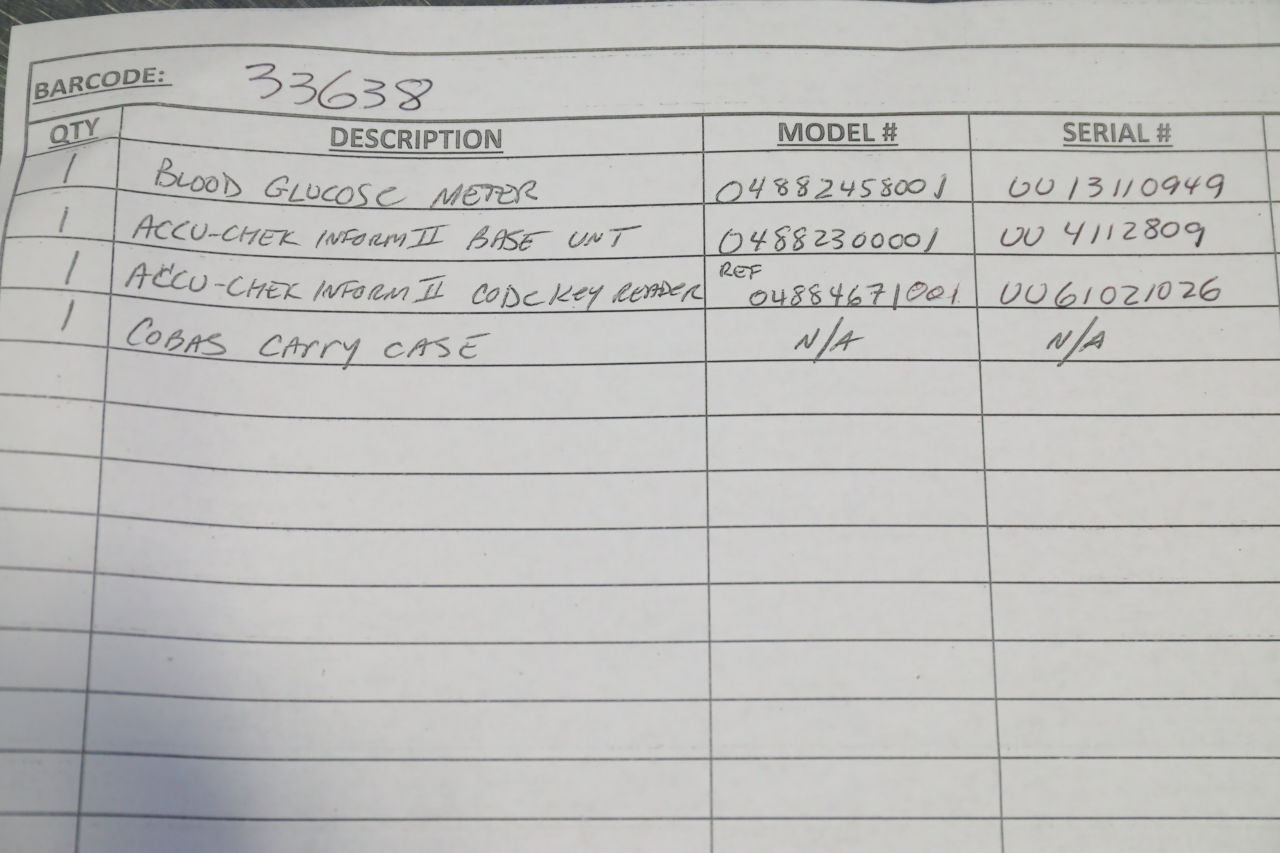 BARCODE: 33638
QTY DESCRIPTION MODEL # SERIAL #
1 BLOOD GLUCOSE METER 04882458001 UU13110949
1 ACCU-CHEK INFORM II BASE UNT 04882300001 UU4112809
1 ACCU-CHEK INFORM II CODE KEY READER REF 04884671001 UU61021026
1 COBAS CARRY CASE N/A N/A